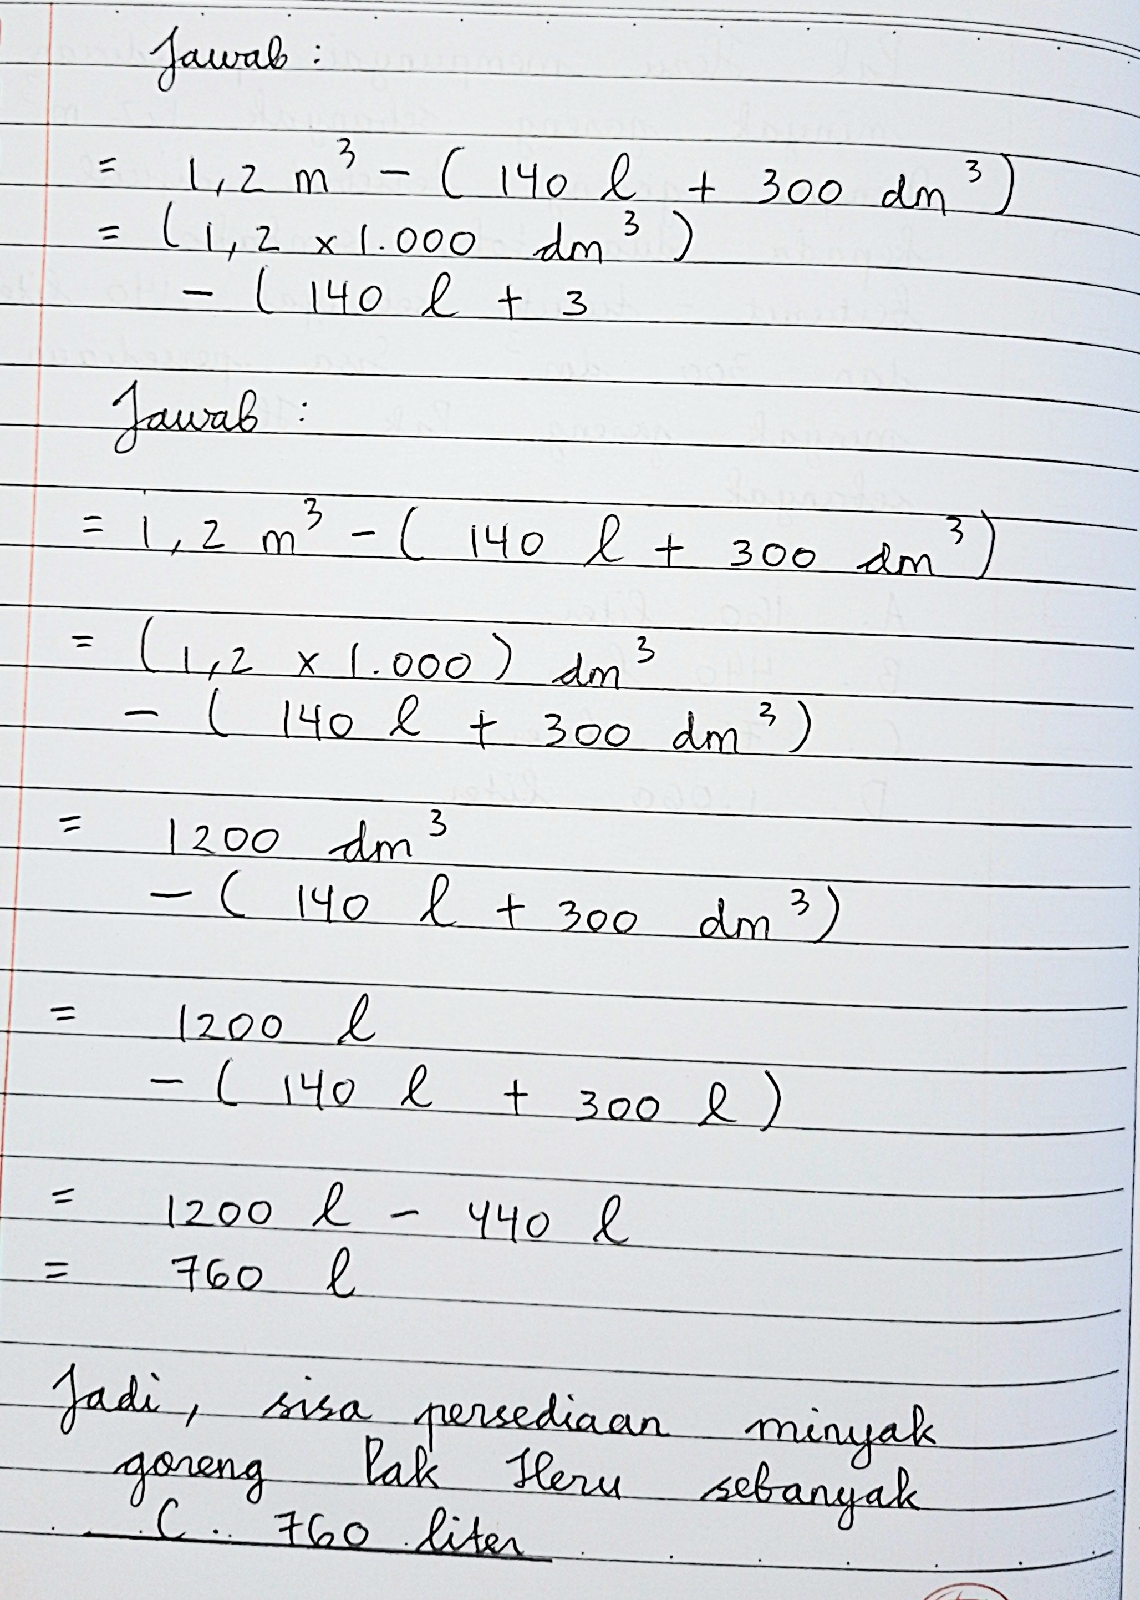 Jawab :
= 1,2 m³ - ( 140 l + 300 dm³ )
= ( 1,2 x 1.000 dm³ )
- ( 140 l + 3
Jawab :
= 1,2 m³ - ( 140 l + 300 dm³ )
= ( 1,2 x 1.000 ) dm³
- ( 140 l + 300 dm³ )
= 1200 dm³
- ( 140 l + 300 dm³ )
= 1200 l
- ( 140 l + 300 l )
= 1200 l - 440 l
= 760 l
Jadi, sisa persediaan minyak
goreng Pak Heru sebanyak
C. 760 liter